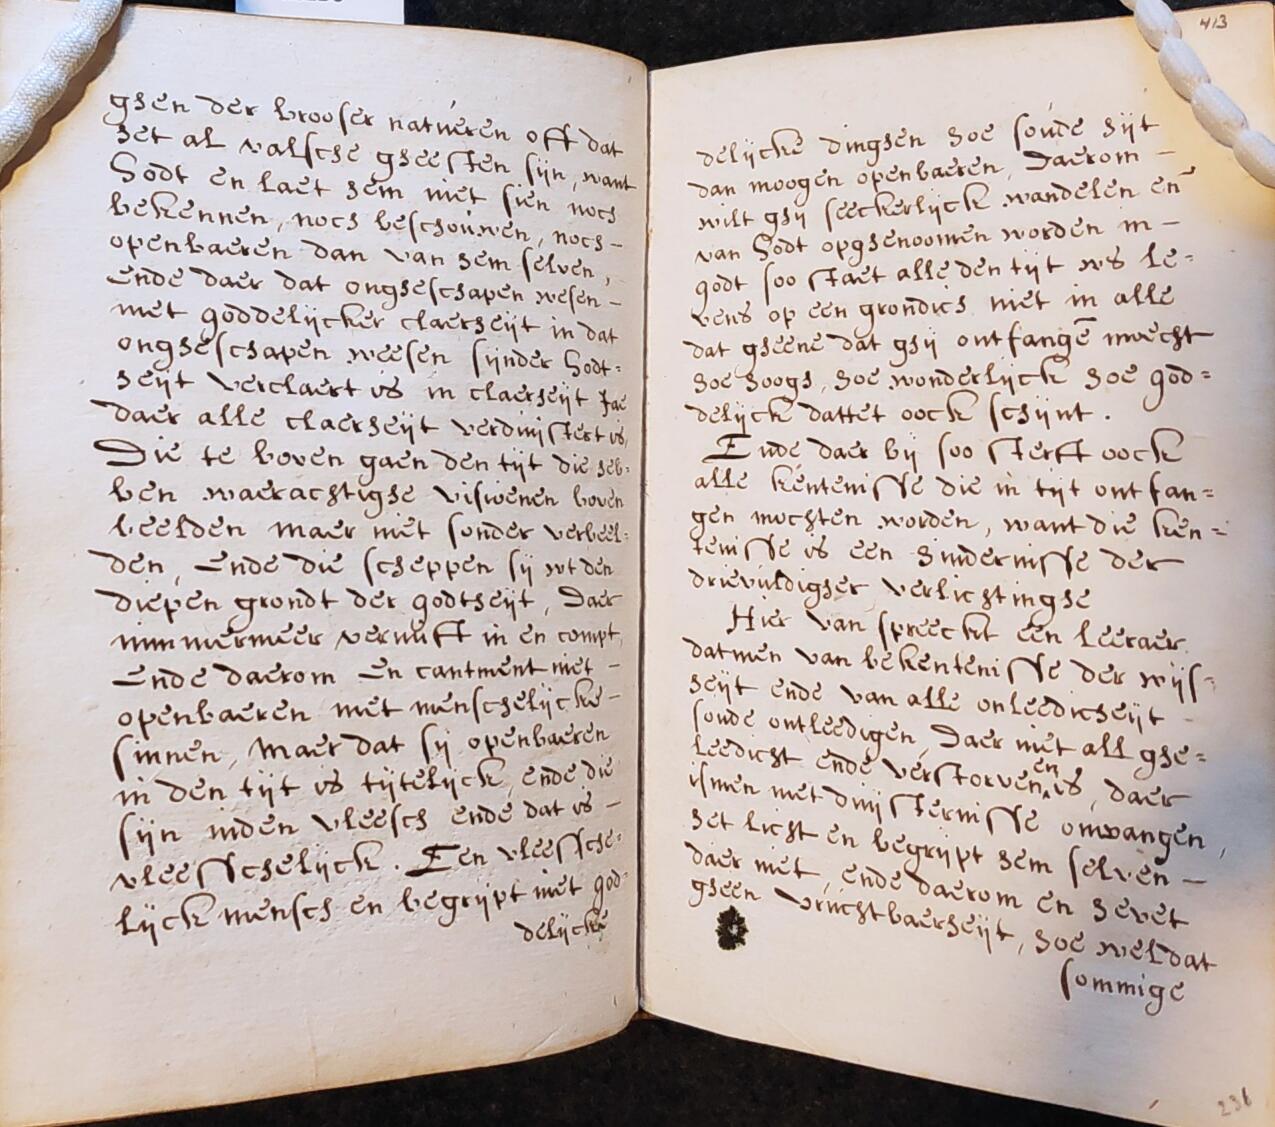 ghen der brooser natúeren off dat
het al valsche gheesten sijn, want
Godt en laet hem niet sien noch
bekennen, noch beschoúwen, noch –
openbaeren dan van hem selven,
ende daer dat ongheschapen wesen –
met goddelijcker claerheijt in dat
ongheschapen weesen sijnder Godt=
heijt verclaert is in claerheijt jae
daer alle claerheijt verduijstert is,
Die te boven gaen den tijt die heb=
ben waerachtighe visioenen boven
beelden maer niet sonder verbeel=
den, ende die scheppen sij wt den
diepen grondt der godtheijt, Daer
nimmermeer vernúft in en compt,
Ende daerom en cantment niet –
openbaeren met menschelijcke –
sinnen, maer dat sij openbaeren
in den tijt is tijtelijck, ende die
sijn inden vleesch ende dat is –
vleesschelijck. Een vleessche=
lijck mensch en begrijpt niet god=
delijcke
413
delijcke dinghen hoe soúde hijt
dan moogen openbaeren, Daerom –
wilt ghij seeckerlijck wandelen en̄
van Godt opghenoomen worden in –
godt soo staet alle den tijt ws le=
vens op een grondich niet in alle
dat gheene dat ghij ontfangē muecht
hoe hoogh, hoe wonderlijck hoe god=
delijck dattet oock schijnt.
Ende daer bij soo sterft oock
alle kentenisse die in tijt ontfan=
gen mochten worden, want die ken=
tenisse is een hindernisse der
drievúldigher verlichtinghe
Hier van spreeckt een leeraer
datmen van bekentenisse der wijs=
heijt ende van alle onleedicheijt –
soúde ontleedigen, Daer niet all ghe=
leedicht ende verstorven en is, daer
ismen met duijsternisse omvangen,
het licht en begrijpt hem selven –
daer niet, ende daerom en hevet
gheen vrúchtbaerheijt, hoe wel dat
sommige
236